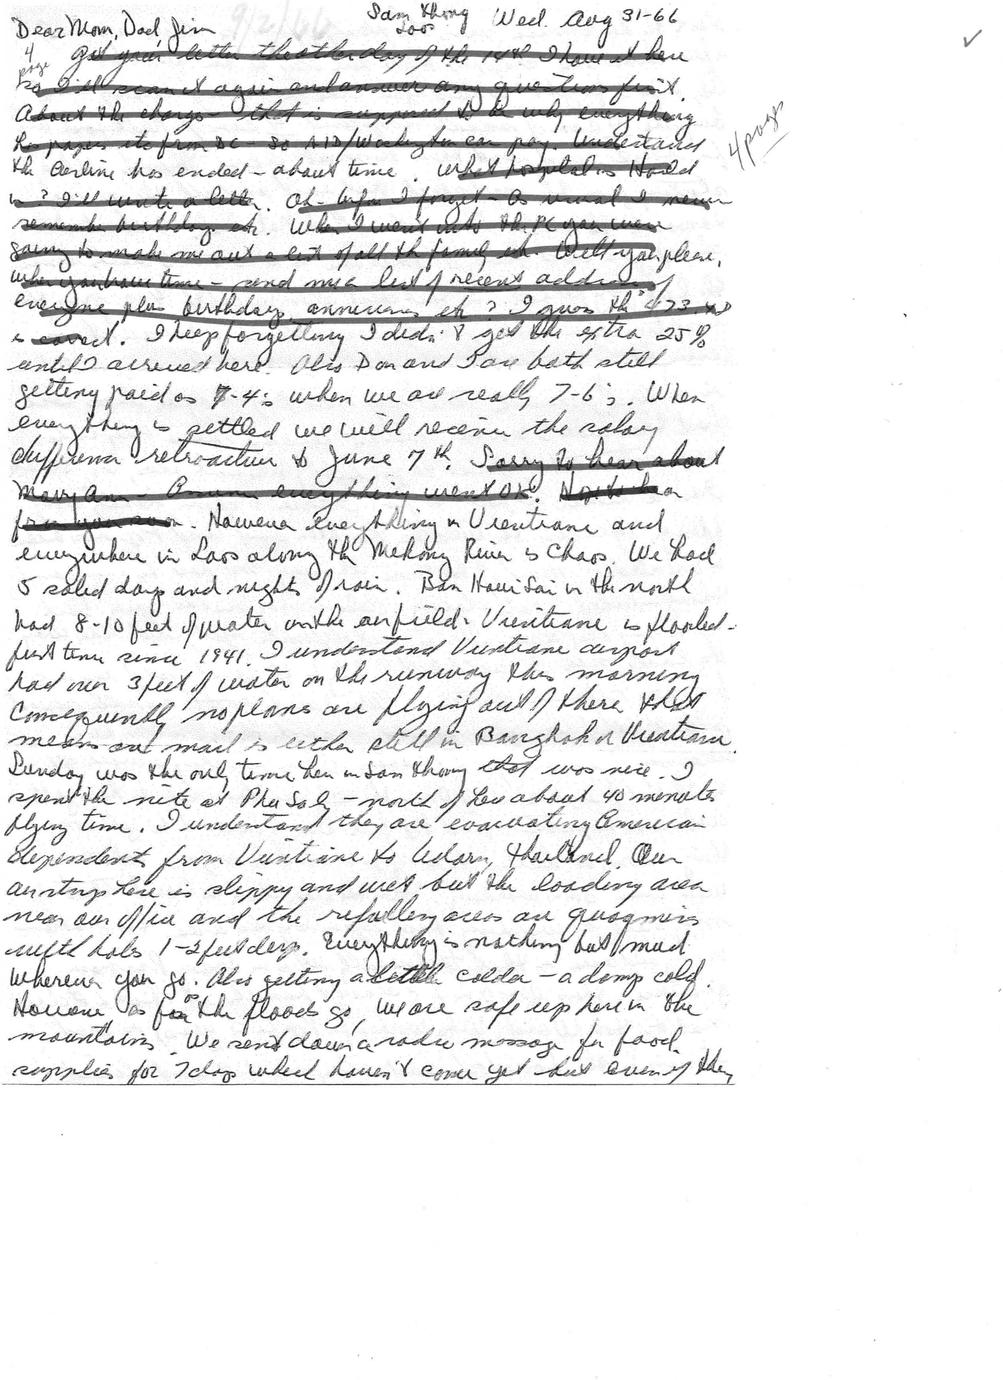 9/2/66
Sam Thong Wed. Aug 31-66
Laos
Dear Mom, Dad, Jim
4 page
Got your letter the other day of the 14th I have it here
so I'll scan it again and answer any questions first.
About the charge - that is supposed to be why everything
papers etc from DC - so AID/Washington can pay. Understand
the Airline has ended - about time. What hospital is Harold
in? I'll write a letter. Oh - before I forget - as usual I never
remember birthdays etc. When I went into the PC you were
going to make me out a list of all the family etc. Will you please,
when you have time - send me a list of recent address of
everyone plus birthdays, etc? I guess the 73.
is correct. I keep forgetting I didn't get the extra 25%
until I arrived here. Also Don and I are both still
getting paid as 7-4's when we are really 7-6's. When
everything is settled we will receive the salary
difference retroactive to June 7th. Sorry to hear about
Mary Ann - everything went OK. Hope to hear
from you soon. However everything in Vientiane and
everywhere in Laos along the Mekong River is Chaos. We had
5 solid days and nights of rain. Ban Houi Sai in the north
had 8-10 feet of water on the airfield. Vientiane is flooded -
first time since 1941. I understand Vientiane airport
had over 3 feet of water on the runway this morning
Consequently no planes are flying out of there that
means our mail is either still in Bangkok or Vientiane.
Sunday was the only time here in Sam Thong that was nice. I
spent the nite at Phu Saly - north of here about 40 minutes
flying time. I understand they are evacuating American
dependents from Vientiane to Udorn, Thailand. Our
airstrip here is slippy and wet but the loading area
near our office and the refueling areas are quagmires
with holes 1-2 feet deep. Everything is nothing but mud
wherever you go. Also getting a little colder - a damp cold.
However as far as the floods go, we are safe up here in the
mountains. We sent down a radio message for food
supplies for 7 days which haven't come yet but even if they
4 page